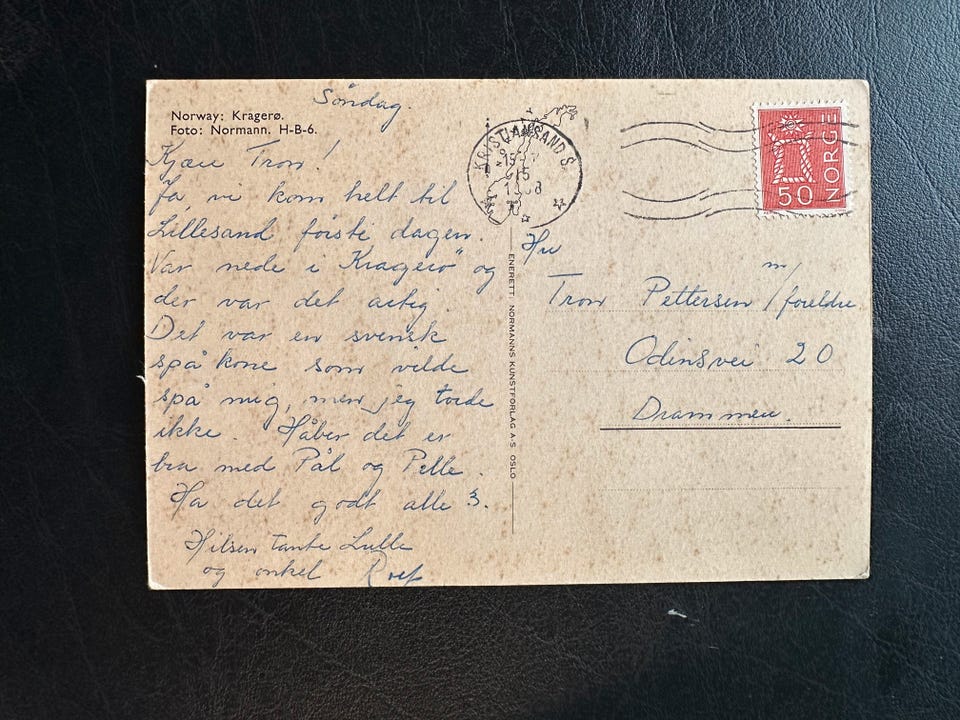 Søndag.
Norway: Kragerø.
Foto: Normann. H-B-6.
Kjære Tron!
Ja, vi kom helt til
Lillesand første dagen.
Var nede i Kragerø" og
der var det artig.
Det var en svensk
spåkone som vilde
spå mig, men jeg torde
ikke. Håber det er
bra med Pål og Pelle.
Ha det godt alle 3.
Hilsen tante Lulle
og onkel Rolf
ENERETT: NORMANNS KUNSTFORLAG A·S OSLO
KRISTIANSAND S.
NORGE
50
Hr
Tron Pettersen m/foreldre
Odinsvei 20
Drammen.